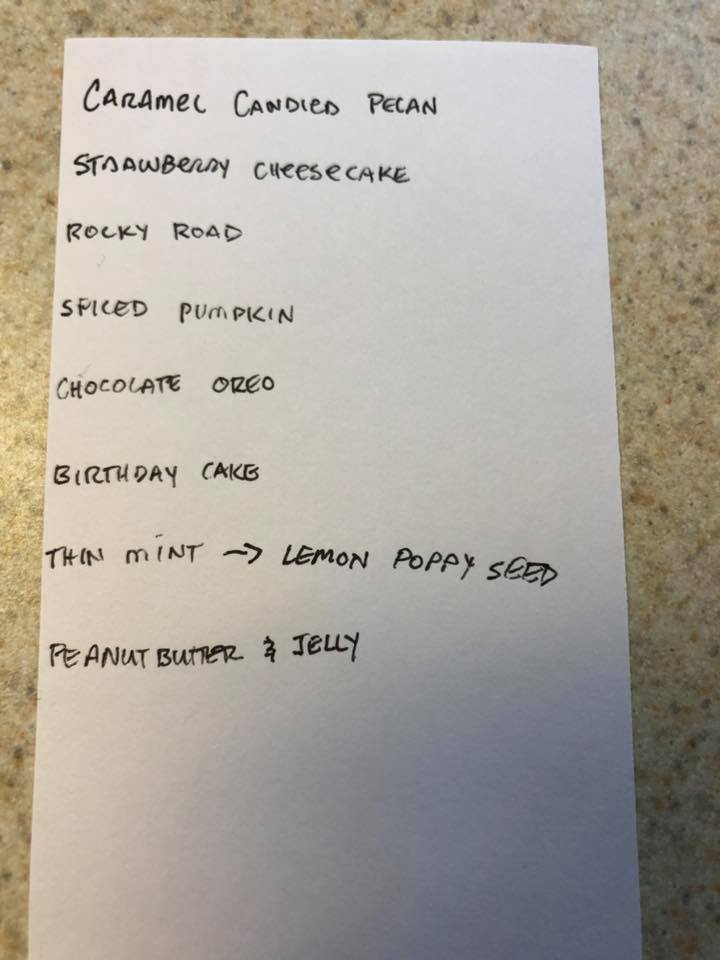 CARAMEL CANDIED PECAN
STRAWBERRY CHEESECAKE
ROCKY ROAD
SPICED PUMPKIN
CHOCOLATE OREO
BIRTHDAY CAKE
THIN MINT → LEMON POPPY SEED
PEANUT BUTTER & JELLY